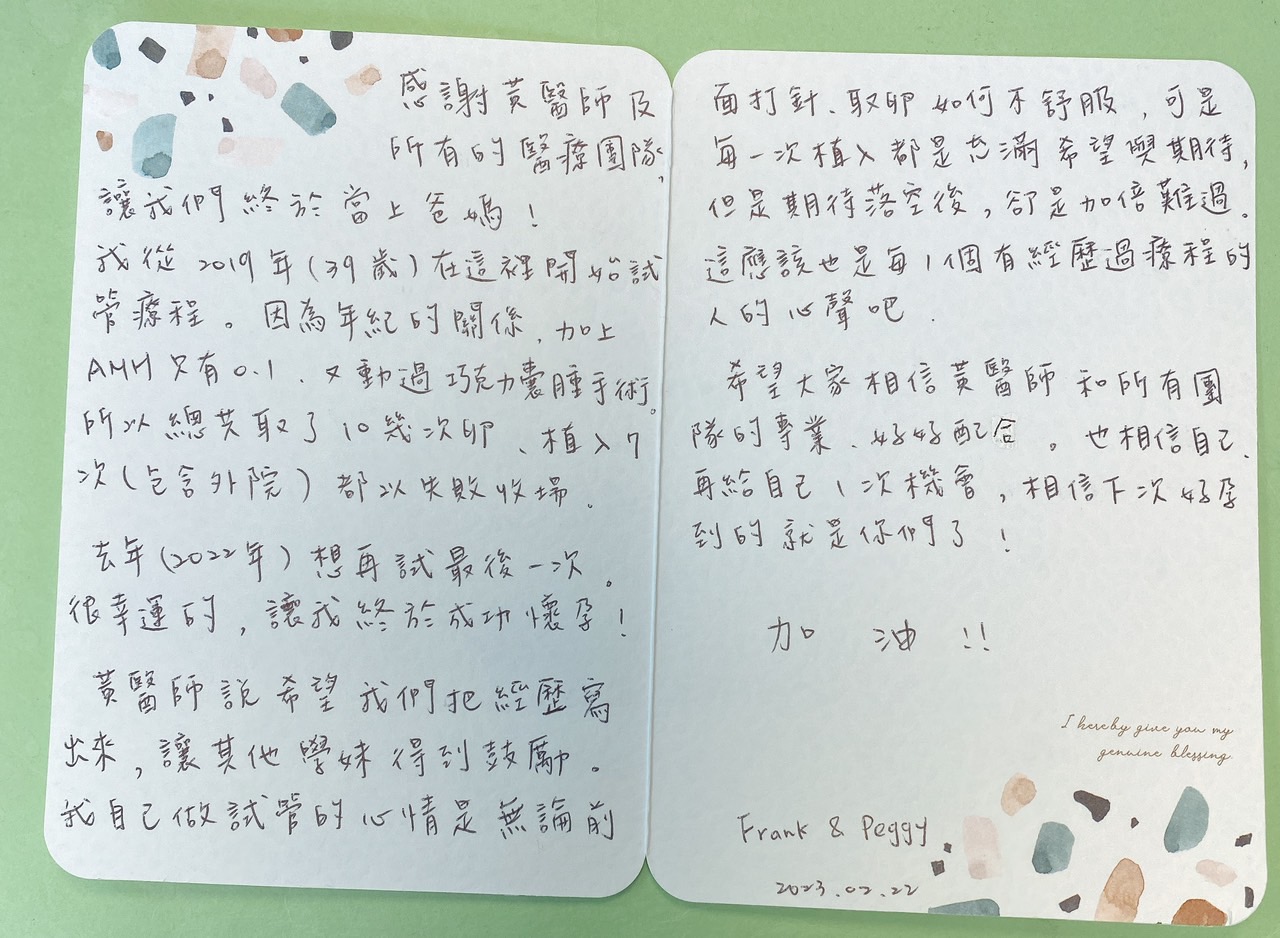 感謝黃醫師及
所有的醫療團隊,
讓我們終於當上爸媽!
我從2019年(39歲)在這裡開始試
管療程。因為年紀的關係、加上
AMH只有0.1、又動過巧克力囊腫手術。
所以總共取了10幾次卵、植入7
次(包含外院)都以失敗收場。
去年(2022年)想再試最後一次。
很幸運的,讓我終於成功懷孕!
黃醫師說希望我們把經歷寫
出來,讓其他學妹得到鼓勵。
我自己做試管的心情是無論前
面打針、取卵如何不舒服,可是
每一次植入都是充滿希望與期待,
但是期待落空後,卻是加倍難過。
這應該也是每1個有經歷過療程的
人的心聲吧.
希望大家相信黃醫師和所有團
隊的專業、好好配合。也相信自己、
再給自己1次機會,相信下次好孕
到的就是你們了!
加油!!
I hereby give you my
genuine blessing
Frank & Peggy
2023.02.22